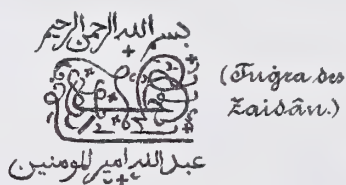 بسم الله الرحمن الرحيم
(Tuġra des
Zaidân.)
عبد الله امير المومنين